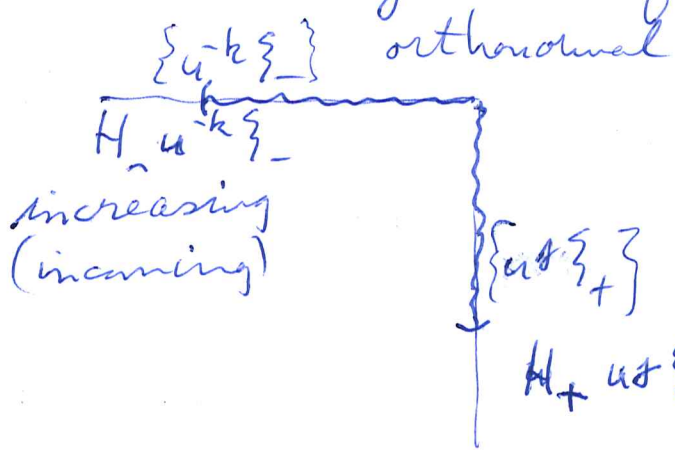 orthonormal
{u^{-k} ξ_-}
H_- u^{-k} ξ_-
increasing
(incoming)
{u^s ξ_+}
H_+ u^s